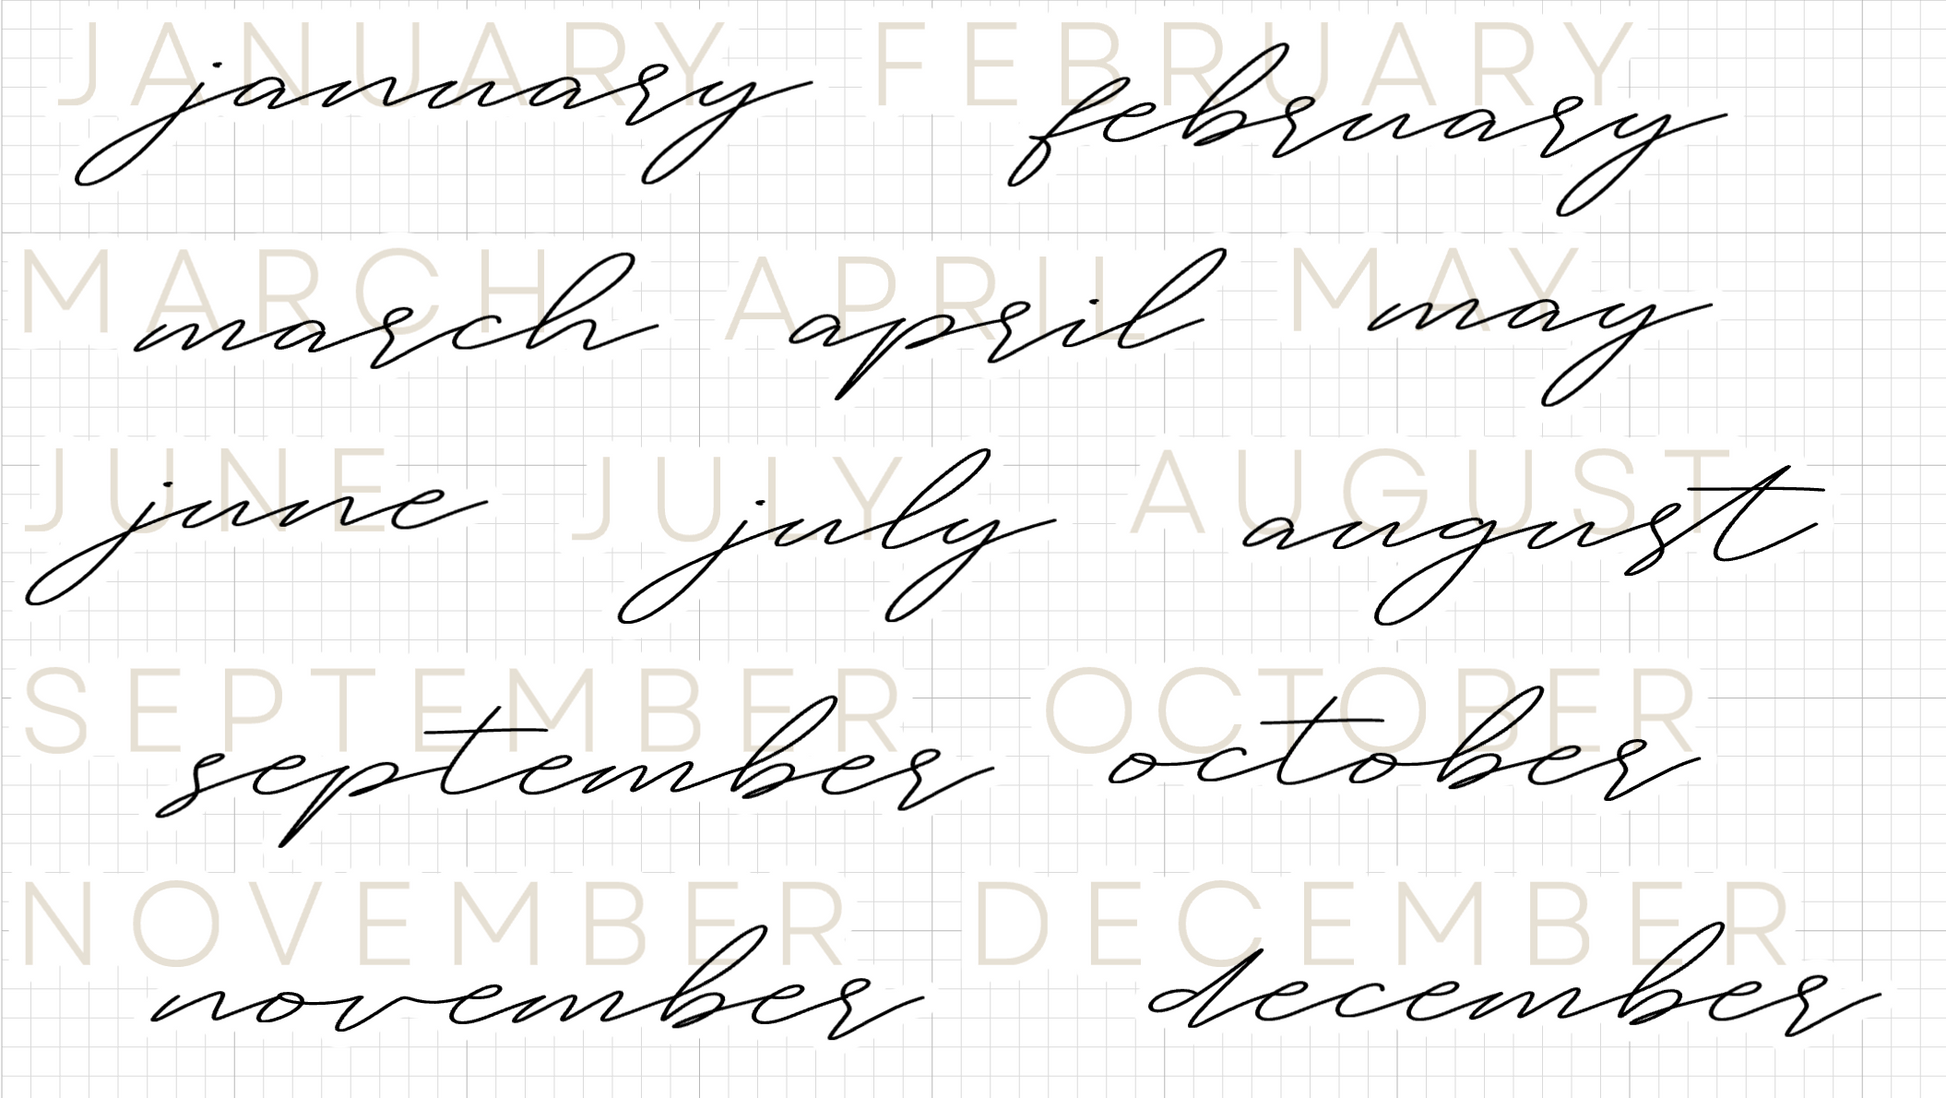 JANUARY FEBRUARY
january february
MARCH APRIL MAY
march april may
JUNE JULY AUGUST
june july august
SEPTEMBER OCTOBER
september october
NOVEMBER DECEMBER
november december